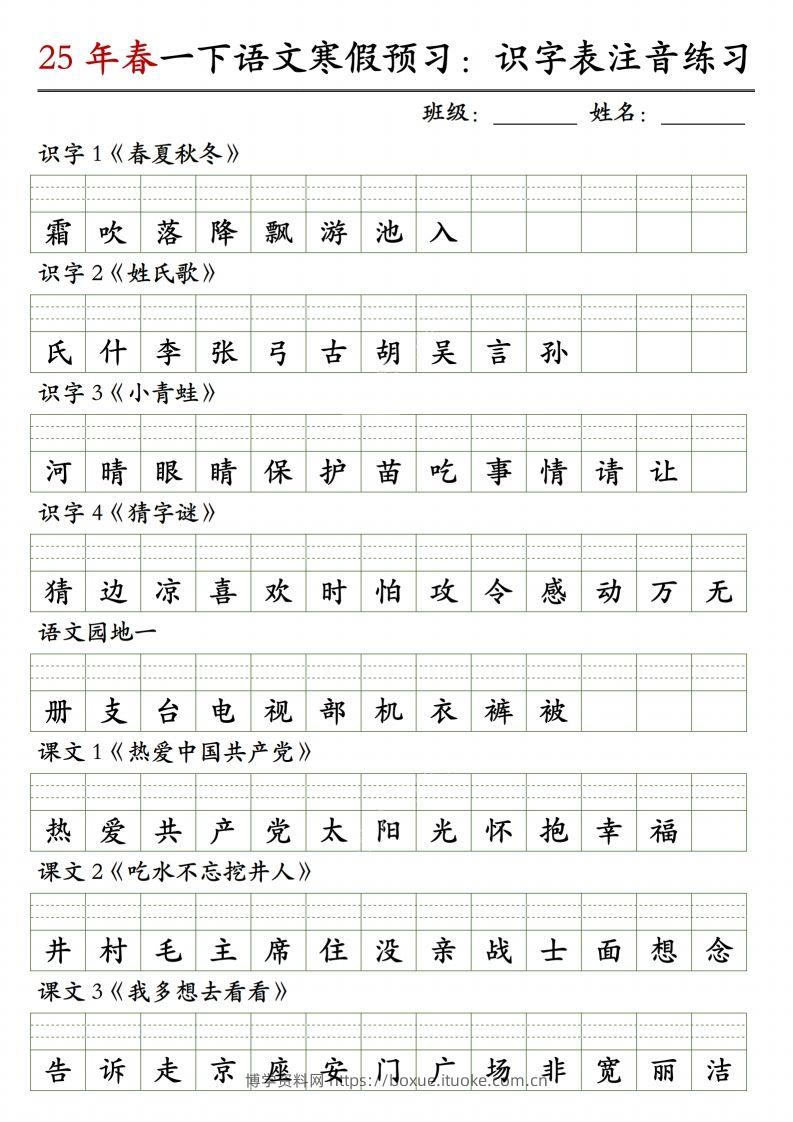 25 年春一下语文寒假预习：识字表注音练习
班级：_______ 姓名：_______
识字 1《春夏秋冬》
霜 吹 落 降 飘 游 池 入
识字 2《姓氏歌》
氏 什 李 张 弓 古 胡 吴 言 孙
识字 3《小青蛙》
河 晴 眼 睛 保 护 苗 吃 事 情 请 让
识字 4《猜字谜》
猜 边 凉 喜 欢 时 怕 攻 令 感 动 万 无
语文园地一
册 支 台 电 视 部 机 衣 裤 被
课文 1《热爱中国共产党》
热 爱 共 产 党 太 阳 光 怀 抱 幸 福
课文 2《吃水不忘挖井人》
井 村 毛 主 席 住 没 亲 战 士 面 想 念
课文 3《我多想去看看》
告 诉 走 京 座 安 门 广 场 非 宽 丽 洁
博学资料网 https://boxue.ituoke.com.cn